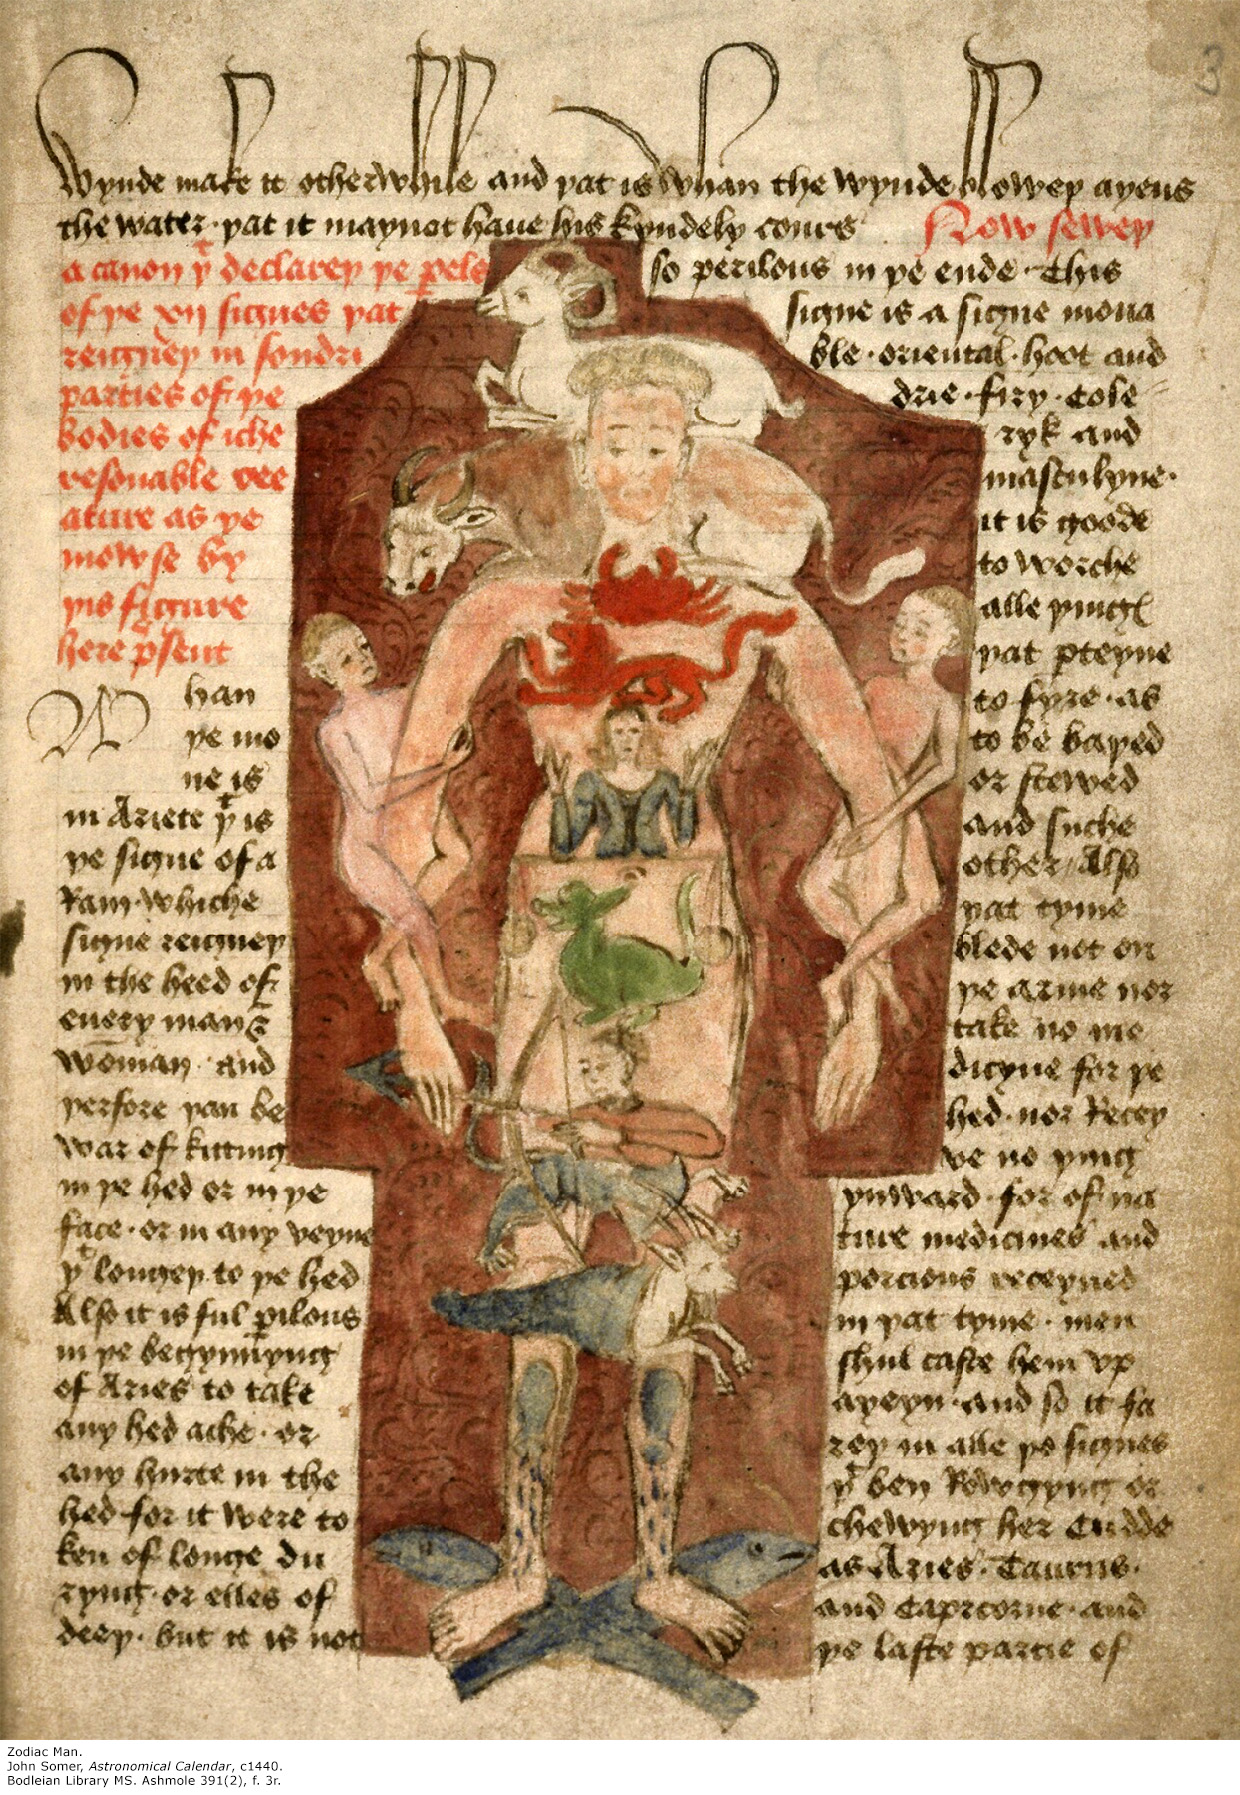 Wynde make it otherwhile and þat is whan the wynde bloweþ ayens
the water. þat it maynot haue his kyndely cours Now seweþ
a canon þᵗ declareþ þe ꝑels
of þe xij signes þat
reigneþ in sondri
parties of þe
bodies of iche
resonable cre
ature as þe
mowse by
þis figure
here p̄sent
Whan
þe mo
ne is
in Ariete þᵗ is
þe signe of a
Ram. whiche
signe reigneþ
in the heed of
euery man &
wōman. and
þerfore þan be
war of kitting
in þe hed or in þe
face. or in any veyne
þᵗ longeþ to þe hed
Also it is ful ꝑilous
in þe begynnyng
of Aries to take
any hed ache. or
any hurte in the
hed for it were to
ken of longe du
ryng. or elles of
deeþ. but it is not
so perilous in þe ende. This
signe is a signe moua
ble. oriental. hoot and
drie. firy. Cole
ryk and
masculyne.
it is goode
to worche
alle þingꝭ
þat ꝑteyne
to fyre. as
to be baþed
or stewed
and suche
other. Also
þat tyme
blede not on
þe arme nor
take no me
dicyne for þe
hed. nor Recey
ve no þing
ynward. for of na
ture medicines and
porcions receyued
in þat tyme. men
shul caste hem vp
ayeyn. and so it fa
reþ in alle þe signes
þᵗ ben Rowgyng or
chewyng her Cudde
as Aries. Taurus.
and Capricorne. and
þe laste partie of
3
Zodiac Man.
John Somer, Astronomical Calendar, c1440.
Bodleian Library MS. Ashmole 391(2), f. 3r.